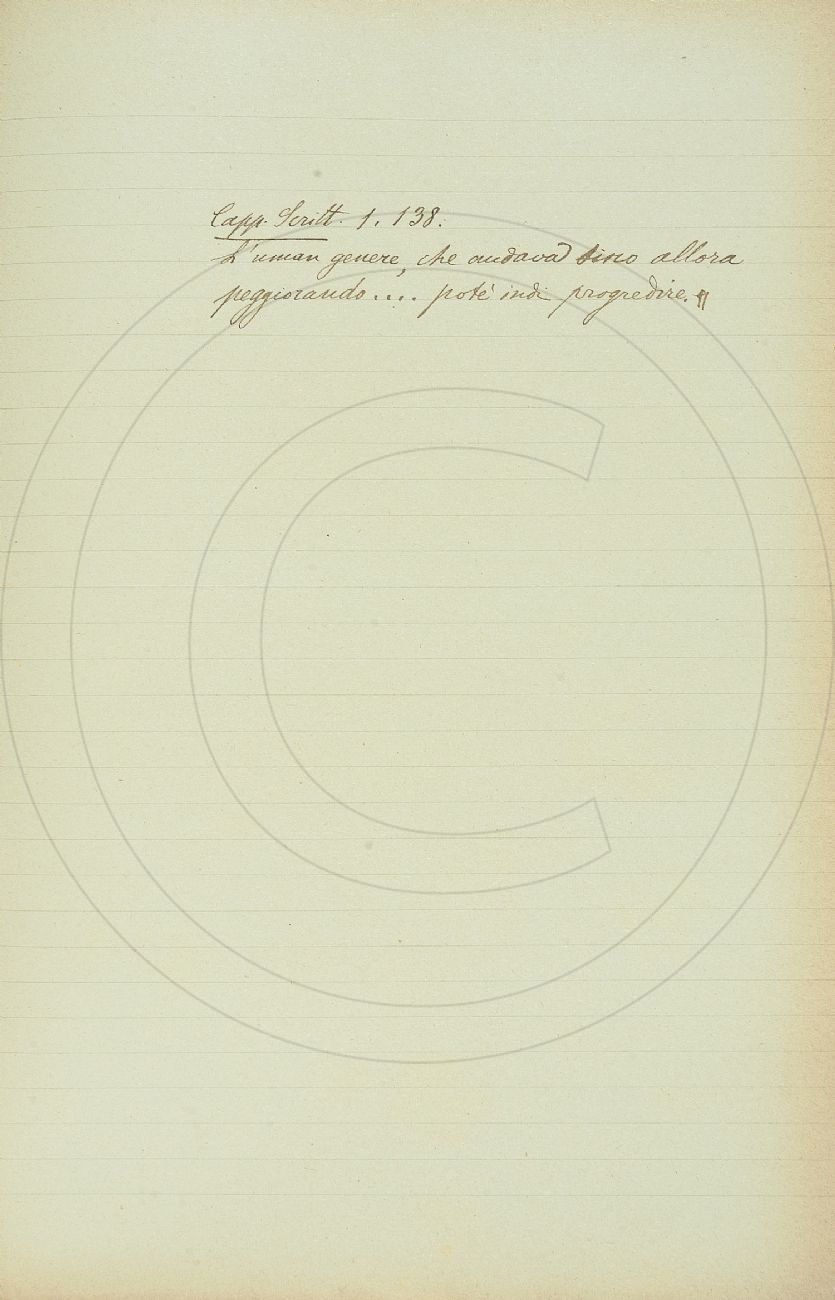 Capp. Scritt. 1. 138.
L'uman genere, che andava sino allora
peggiorando.... poté indi progredire. ¶